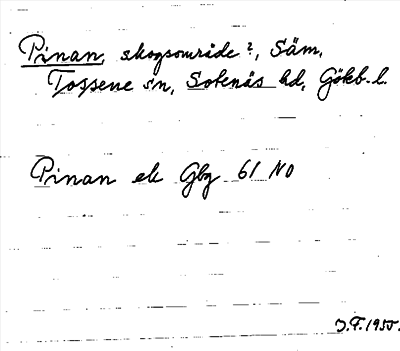 Pinan, skogsområde?, Säm,
Tossene sn, Sotenäs hd, Götb. l.
Pinan ek Gbg 61 NO
J.F. 1955.